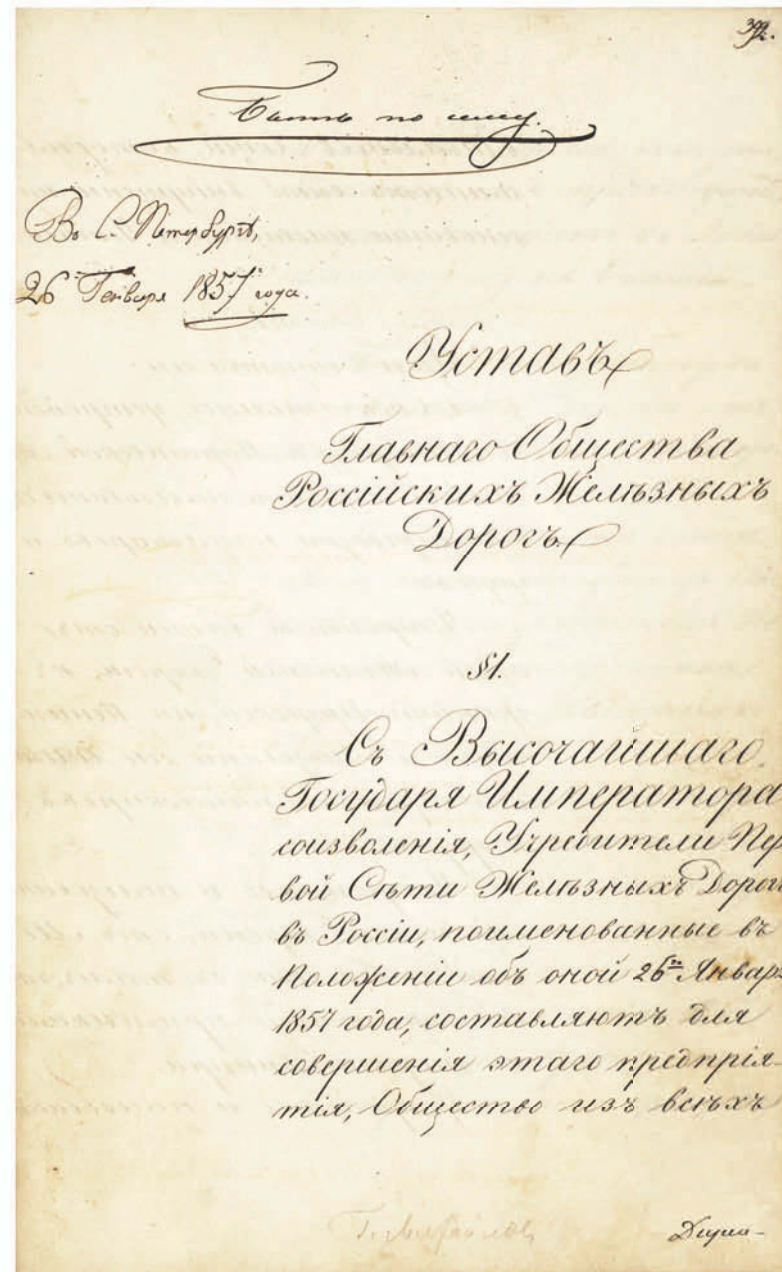 Быть по сему.
Въ С. Петербургѣ,
26 Генваря 1857 года.
Уставъ
Главнаго Общества
Россійскихъ Желѣзныхъ
Дорогъ
§1.
Съ Высочайшаго
Государя Императора
соизволенія, Учредители Пер
вой Сѣти Желѣзныхъ Дорогъ
въ Россіи, поименованные въ
Положеніи объ оной 26го Января
1857 года, составляютъ для
совершенія этаго предпрія-
тія, Общество изъ всѣхъ